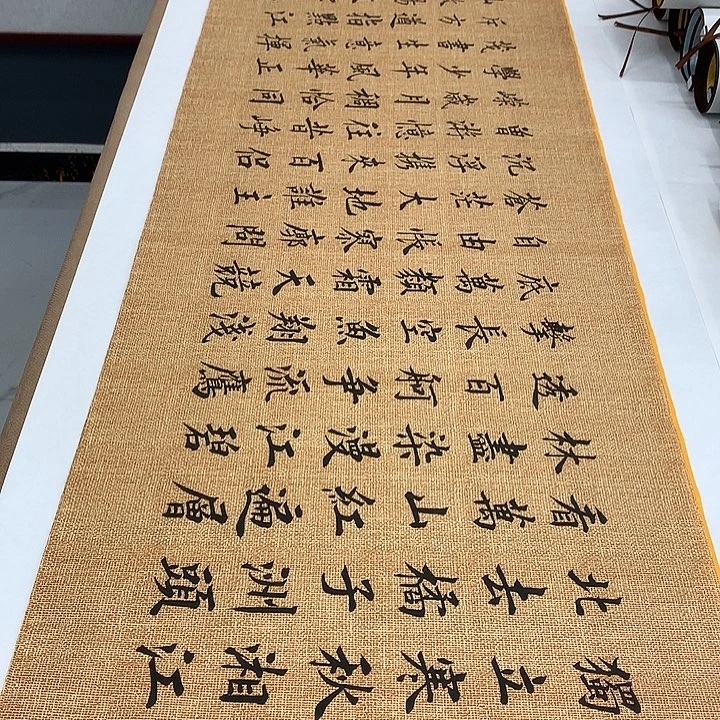 獨立寒秋湘江
北去橘子洲頭
看萬山紅遍層
林盡染漫江碧
透百舸爭流鷹
擊長空魚翔淺
底萬類霜天競
自由悵寥廓問
蒼茫大地誰主
沉浮携來百侶
曾游憶往昔崢
嶸歲月稠恰同
學少年風華正
茂書生意氣揮
斥方遒指點江